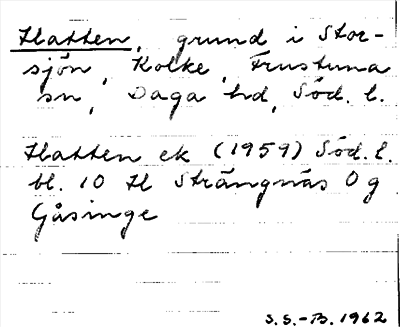 Hatten, grund i Stor-
sjön, Kolke, Frustuna
sn, Daga hd, Söd. l.
Hatten ek (1959) Söd. l.
bl. 10 H Strängnäs Og
Gåsinge
S.S.-B. 1962